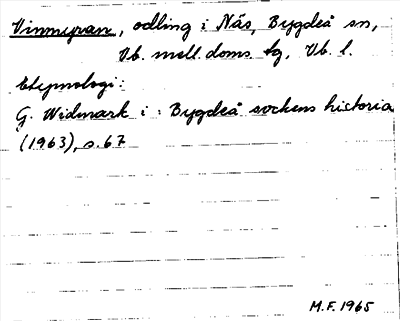 Vinmyran, odling i Näs, Bygdeå sn,
Vb. mell. doms. tg, Vb. l.
Etymologi:
G. Widmark i: Bygdeå sockens historia
(1963), s. 67
M.F. 1965